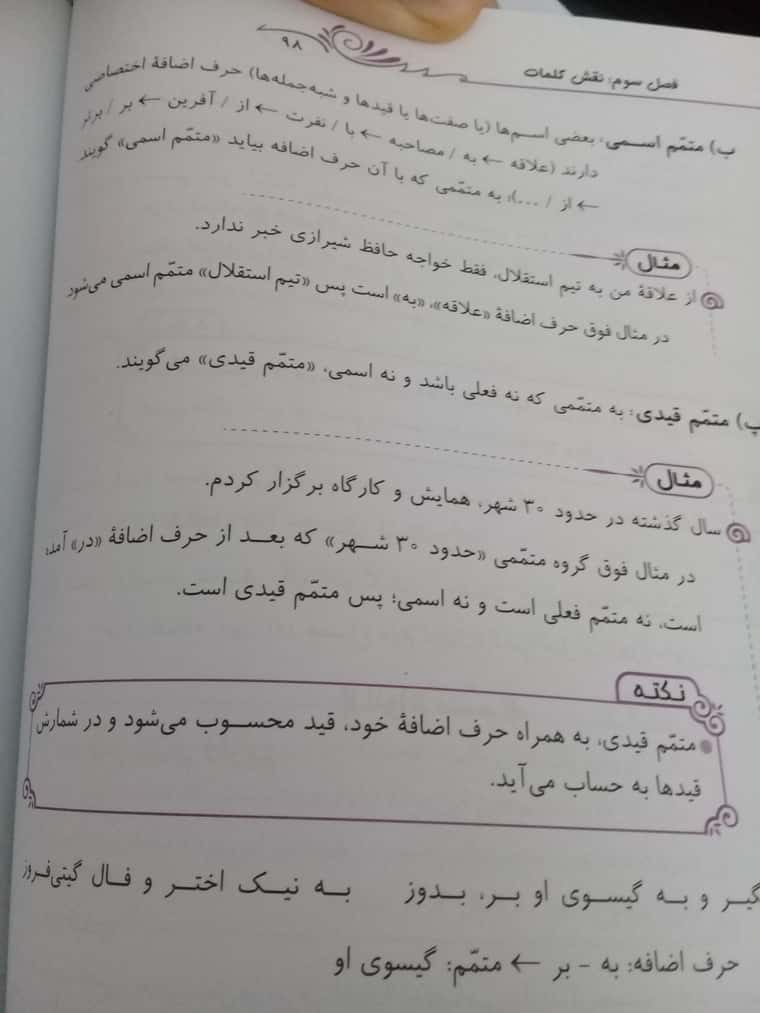 فصل سوم: نقش کلمات
۹۸
ب) متمّم اسمی، بعضی اسم‌ها (یا صفت‌ها یا قیدها و شبه‌جمله‌ها) حرف اضافهٔ اختصاصی
دارند (علاقه ← به / مصاحبه ← با / نفرت ← از / آفرین ← بر / برتر
← از / ...)؛ به متمّمی که با آن حرف اضافه بیاید «متمّم اسمی» گویند
مثال
از علاقهٔ من به تیم استقلال، فقط خواجه حافظ شیرازی خبر ندارد.
در مثال فوق حرف اضافهٔ «علاقه»، «به» است پس «تیم استقلال» متمّم اسمی می‌شود
پ) متمّم قیدی: به متمّمی که نه فعلی باشد و نه اسمی، «متمّم قیدی» می‌گویند.
مثال
سال گذشته در حدود ۳۰ شهر، همایش و کارگاه برگزار کردم.
در مثال فوق گروه متمّمی «حدود ۳۰ شهر» که بعد از حرف اضافهٔ «در» آمده
است، نه متمّم فعلی است و نه اسمی؛ پس متمّم قیدی است.
نکته
متمّم قیدی، به همراه حرف اضافهٔ خود، قید محسوب می‌شود و در شمارش
قیدها به حساب می‌آید.
گیر و به گیسوی او بر، بدوز به نیک اختر و فال گیتی‌فروز
حرف اضافه: به - بر ← متمّم: گیسوی او